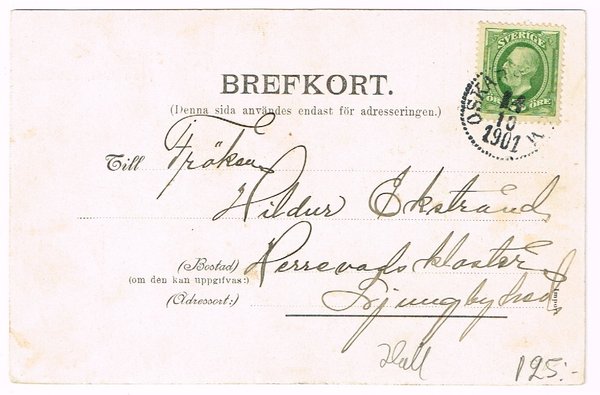 SVERIGE
ÖRE
14
10
1901
BREFKORT.
(Denna sida användes endast för adresseringen.)
Till Fröken
Hildur Ekstrand
(Bostad) Herrevadskloster
(om den kan uppgifvas:)
(Adressort:) Ljungbyhed
Import
Hall
125:-